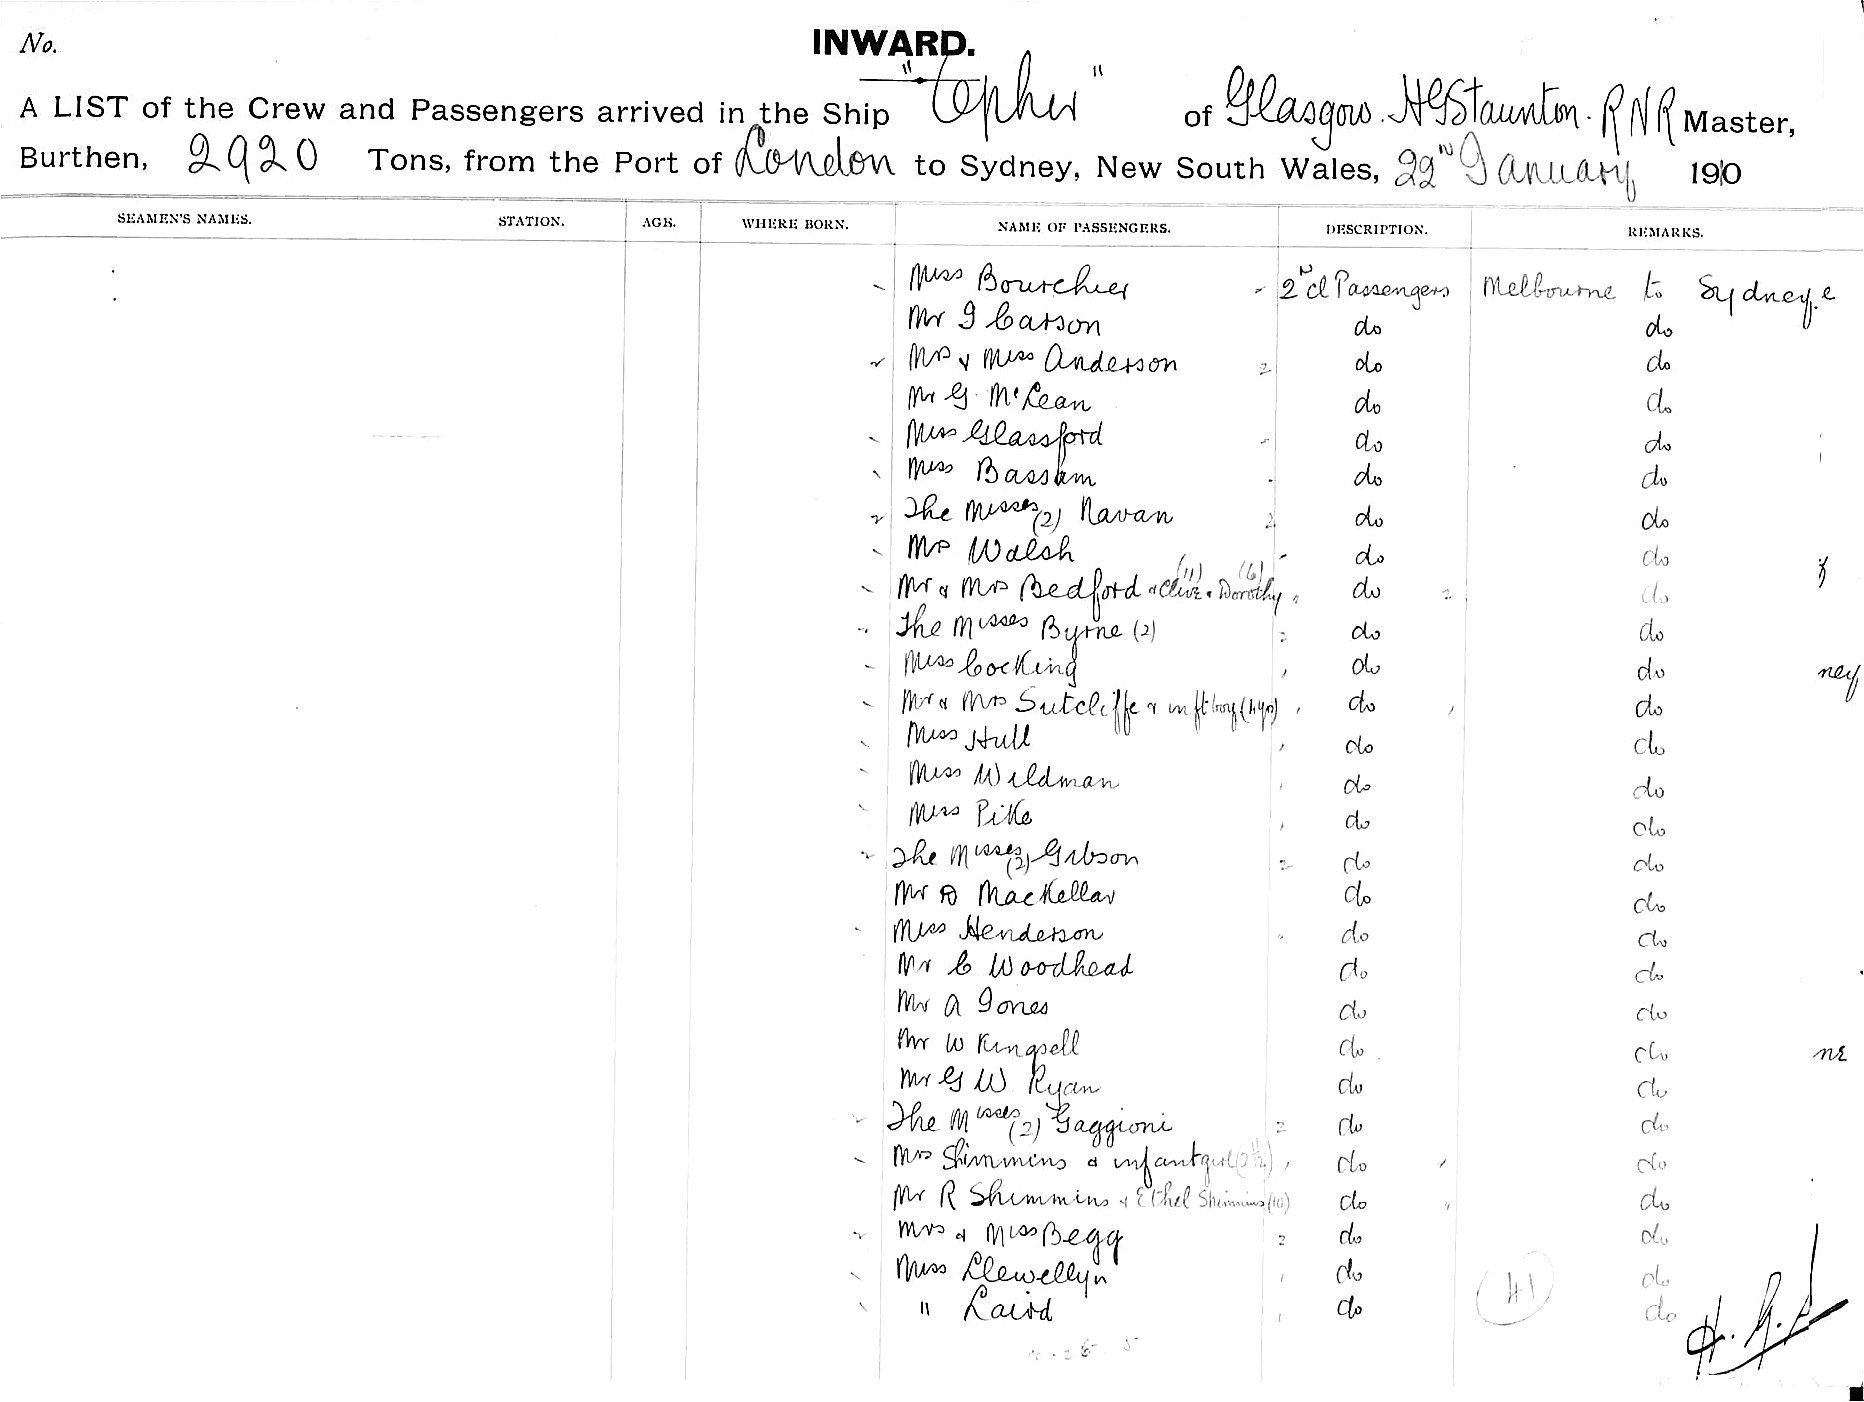 No. INWARD.
A LIST of the Crew and Passengers arrived in the Ship "Ophir" of Glasgow. HGStaunton. RNR Master,
Burthen, 2920 Tons, from the Port of London to Sydney, New South Wales, 22nd January 1910
SEAMEN'S NAMES. STATION. AGE. WHERE BORN. NAME OF PASSENGERS. DESCRIPTION. REMARKS.
Miss Bourchier 2nd cl Passengers Melbourne to Sydney
Mr J Carson do do
Mrs & Miss Anderson 2 do do
Mr G McLean do do
Miss Glassford do do
Miss Bassam do do
The Misses (2) Navan 2 do do
Mrs Walsh do do
Mr & Mrs Bedford & Clive (11) & Dorothy (6) do 2 do
The Misses Byrne (2) 2 do do
Miss Cocking do do ney
Mr & Mrs Sutcliffe & inft boy do do
Miss Hull do do
Miss Wildman do do
Miss Pike do do
The Misses (2) Gibson 2 do do
Mr D MacKellar do do
Miss Henderson do do
Mr C Woodhead do do
Mr A Jones do do
Mr W Kingsell do do ne
Mr G W Ryan do do
The Misses (2) Gaggioni 2 do do
Mrs Shimmins & infant girl do do
Mr R Shimmins & Ethel Shimmins (10) do do
Mrs & Miss Begg 2 do do
Miss Llewellyn do 41 do
" Laird do do
H. G. S